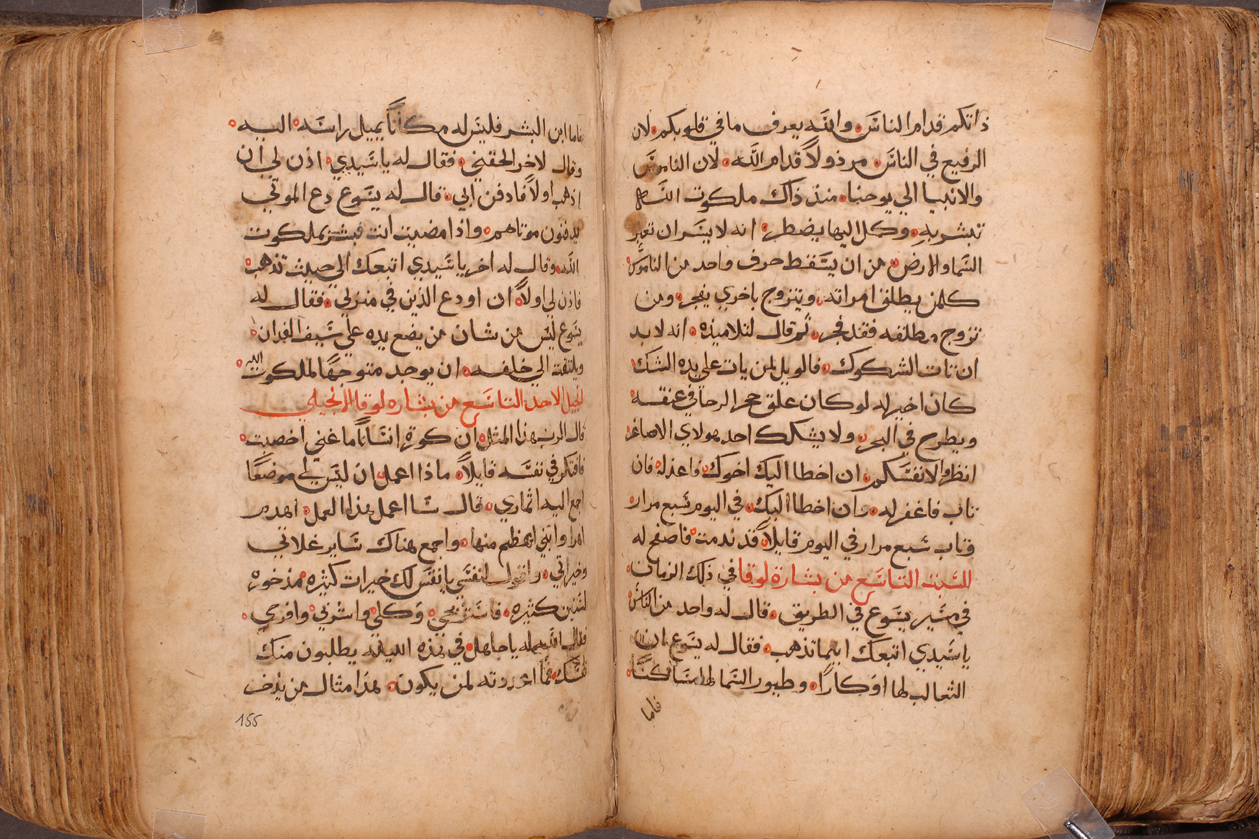 ذاتكم قدام الناس والله يعرف ما في قلوبكم لان
الرفيع في الناس مرذولاً قدام الله لان الناموس
والانبيا الي يوحنا منذ ذاك ملكوت الله
تبشر به وكل اليها يضطر انه لايسر ان تعبر
السما والارض من ان يسقط حرف واحد من الناموس
كلمن يطلق امراته ويتزوج باخري يفجر ومن
تزوج مطلقه فقد فجر ثم قال لتلاميذه انه لابد
ان تات الشكوك فالويل لمن يات علي يده الشك
كان اخير له لو كان علق حجر الرحا في عنقه
ويطرح في البحر ولا يشكك احد هولاي الاصاغر
انظروا لانفسكم ان اخطا اليك اخوك فاعذله فان
تاب فاغفر له وان اخطا اليك في اليوم سبع مرار
وتاب سبع مرار في اليوم قايلاً قد ندمت فاصفح له
للسبت التاسع من بشارة لوقا في ذلك الزمان
في مسير يسوع في الطريق قال له واحد من الناس
ياسيدي اتبعك اينما تذهب فقال له يسوع ان
الثعالب لها اوكارًا وطيور السما لها مساكنًا
فاما
فاما ابن البشر فليس له مكاناً يميل راسه اليه
وقال لاخر الحقني فقال له ياسيدي اذن لي ان
اذهب اولاً فادفن ابي قال له يسوع دع الموتي
يدفنون موتاهم واذا مضيت انت فبشر بملكوت
الله وقال له اخر ياسيدي اتبعك الي حيث تذهب
فاذن لي اولاً ان اودع الذين في منزلي فقال له
يسوع ليس من شان من يضع يده علي سيف الفدان
ويلتفت الي خلفه ان يوجد متوجهًا لملكوت الله
انجيل الاحد التاسع من بشاره لوقا الانجيلي
قال الرب هذا المثل ان كورة انسانًا ما غني اخصبت
فافتكر في نفسه قايلاً ماذا اعمل ان ليس لي موضعًا
اجمع اليه اثماري قال سا اعمل هذا العمل اهدم
اهرا وابني اعظم منها واجمع هناك ساير غلاتي
وخيراتي واقول لنفسي يانفس لك خيرات كثيره مذخوره
لسنين كثيره فاستريحي وكلي واشربي وافرحي
فقال الله له ياجاهل في هذه الليله يطلبون منك
نفسك فما اعددته لمن يكون هذا مثال من يذخر
155